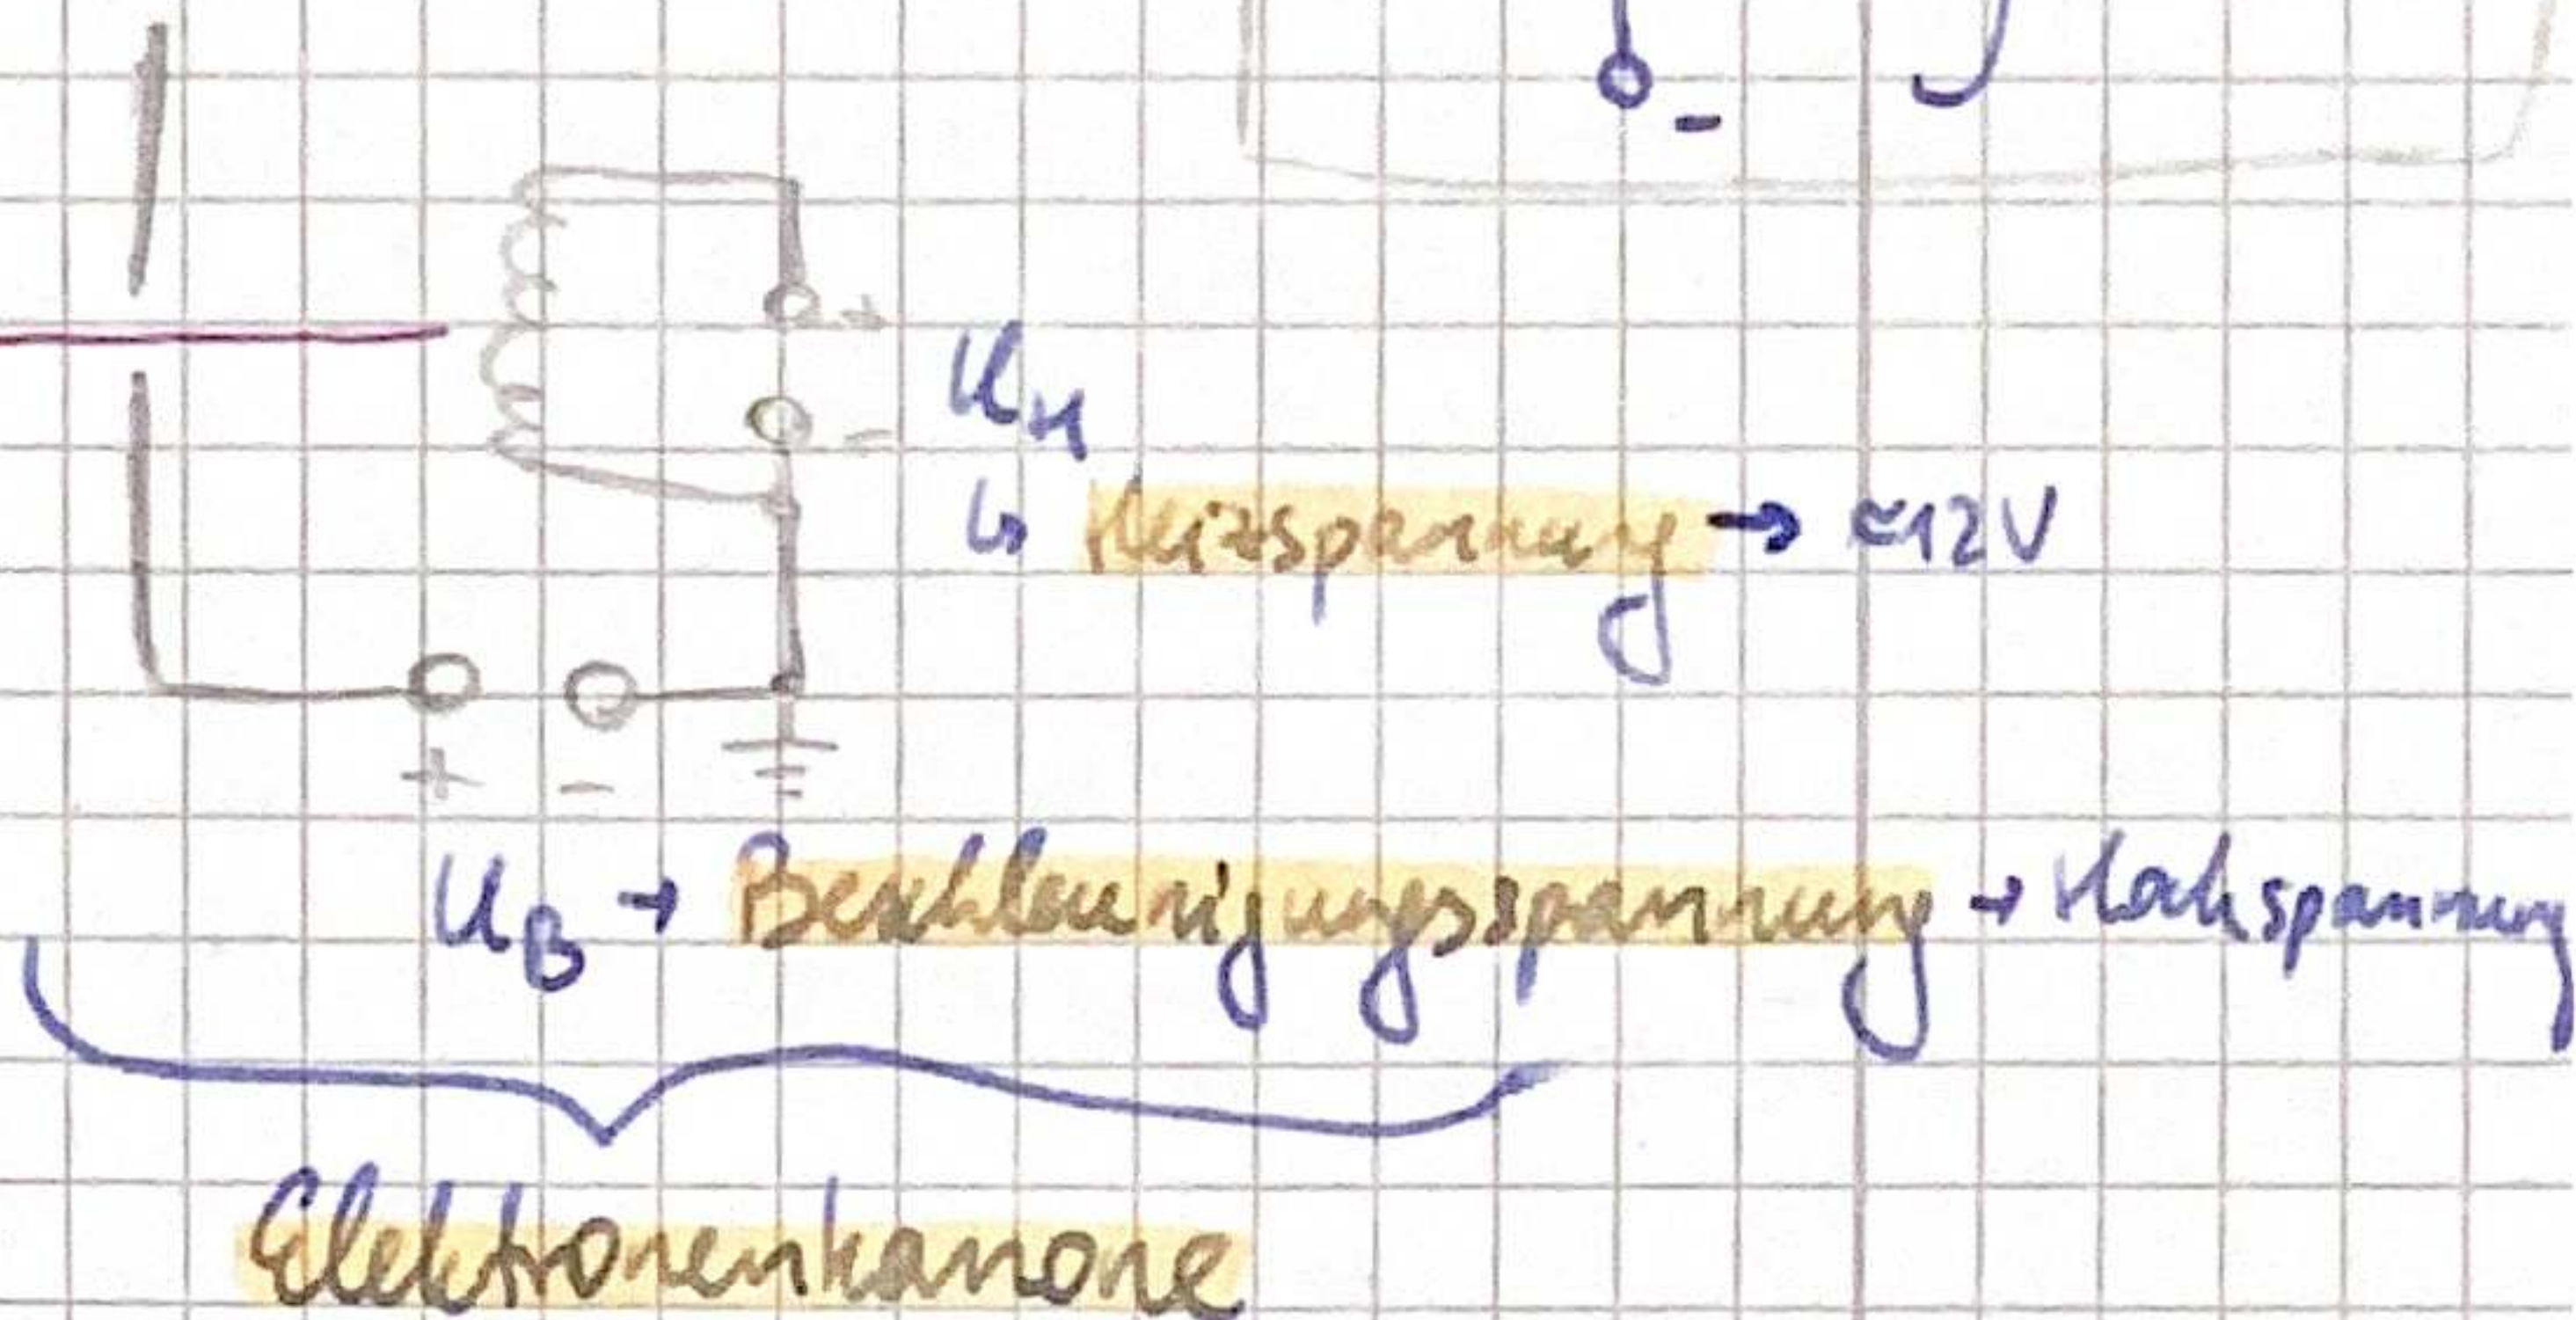 -
+
-
U_H
↳ Heizspannung → ≈12V
+ -
U_B → Beschleunigungsspannung → Hochspannung
Elektronenkanone